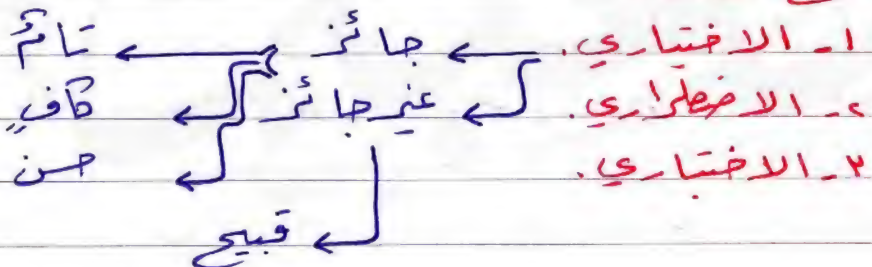 ١- الاختياري. ← جائز ← تامٌ
٢- الاضطراري. ← غير جائز ← كافٍ
٣- الاختباري. ← حسن
← قبيح